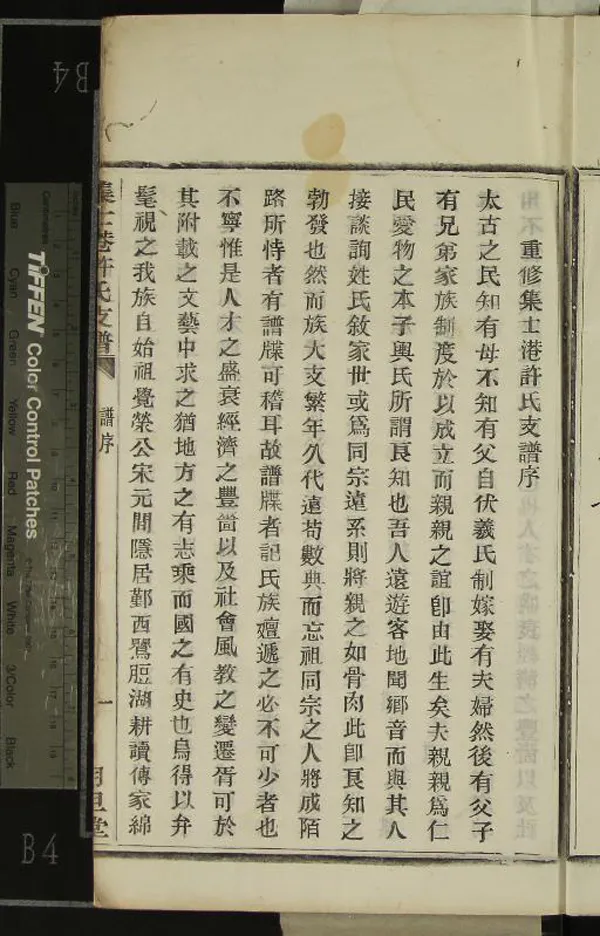 重修集士港許氏支譜序
太古之民知有母不知有父自伏羲氏制嫁娶有夫婦然後有父子
有兄弟家族制度於以成立而親親之誼卽由此生矣夫親親爲仁
民愛物之本子輿氏所謂良知也吾人遠遊客地聞鄉音而與其人
接談詢姓氏敘家世或爲同宗遠系則將親之如骨肉此卽良知之
勃發也然而族大支繁年久代遠苟數典而忘祖同宗之人將成陌
路所恃者有譜牒可稽耳故譜牒者記氏族嬗遞之必不可少者也
不寧惟是人才之盛衰經濟之豐嗇以及社會風教之變遷胥可於
其附載之文藝中求之猶地方之有志乘而國之有史也烏得以弁
髦視之我族自始祖覺榮公宋元間隱居鄞西鸎脰湖耕讀傳家綿
集士港許氏支譜
譜序
一
月旦堂
B4
TIFFEN Color Control Patches
Blue Cyan Green Yellow Red Magenta White 3/Color Black
Centimetres
B4